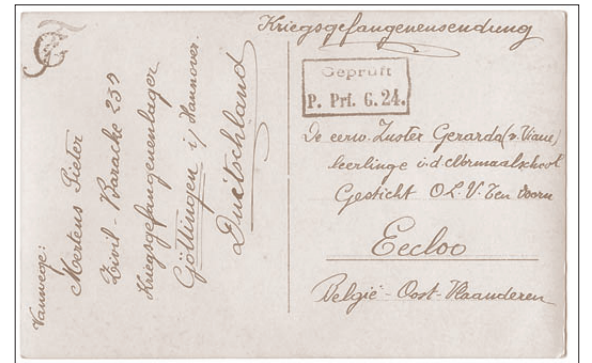 Kriegsgefangenensendung
Geprüft
P. Prf. G. 24.
De eerw. Zuster Gerarda (v. Viane)
leerlinge i. d. Normaalschool
Gesticht O. L. V. Ten Doorn
Eecloo
België - Oost-Vlaanderen
Vanwege:
Mertens Pieter
Zivil - Baracke 239
Kriegsgefangenenlager
Göttingen i/ Hannover.
Duitschland